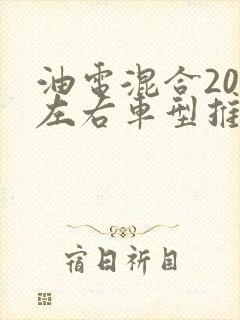 油电混合20
左右车型推
宿日祈目